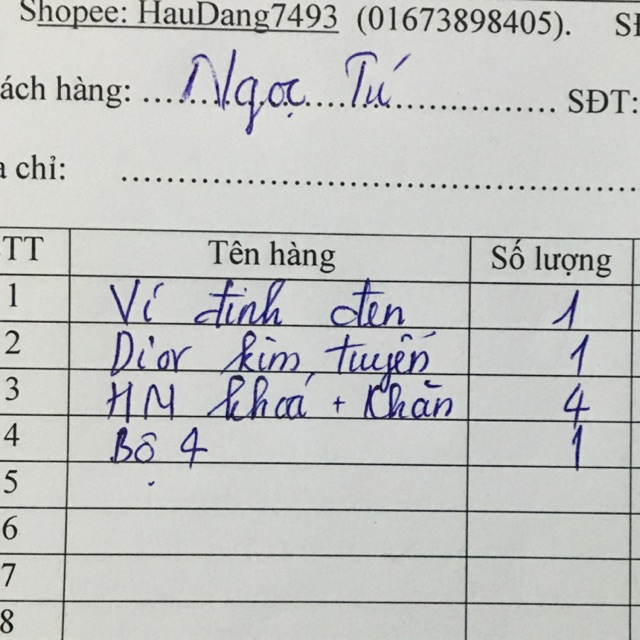 Shopee: HauDang7493 (01673898405). SĐ
ách hàng: ......Ngọc Tú.................. SĐT:
a chỉ: ..................................................
TT Tên hàng Số lượng
1 Ví đinh đen 1
2 Dior kim tuyến 1
3 HM khoá + Khăn 4
4 Bộ 4 1
5
6
7
8